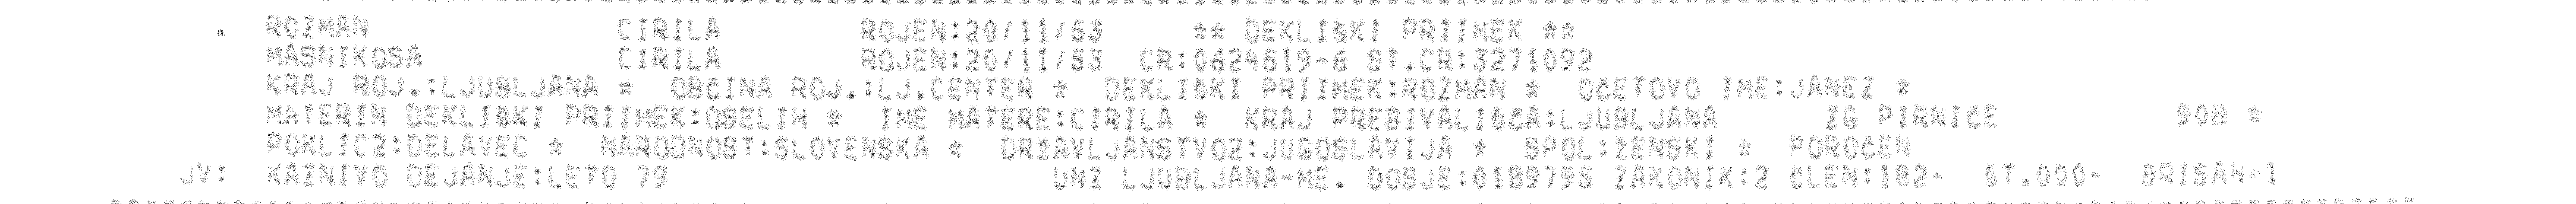 ROZMAN CIRILA ROJEN:20/11/53 ** DEKLISKI PRIIMEK **
MASNIKOSA CIRILA ROJEN:20/11/53 CR:0624519-6 ST.CR:3271092
KRAJ ROJ.:LJUBLJANA * OBCINA ROJ.:LJ.CENTER * DEKLISKI PRIIMEK:ROZMAN * OCETOVO IME:JANEZ *
MATERIN DEKLISKI PRIIMEK:OSELIH * IME MATERE:CIRILA * KRAJ PREBIVALISCA:LJUBLJANA ZG PIRNICE 90B *
POKLIC2:DELAVEC * NARODNOST:SLOVENSKA * DRZAVLJANSTVO2:JUGOSLAVIJA * SPOL:ZENSKI * POROCEN
JV: KAZNIVO DEJANJE:LETO 79 UNZ LJUBLJANA-ME. DOSJE:0189795 ZAKONIK:2 CLEN:182- ST.000- BRISAN-1